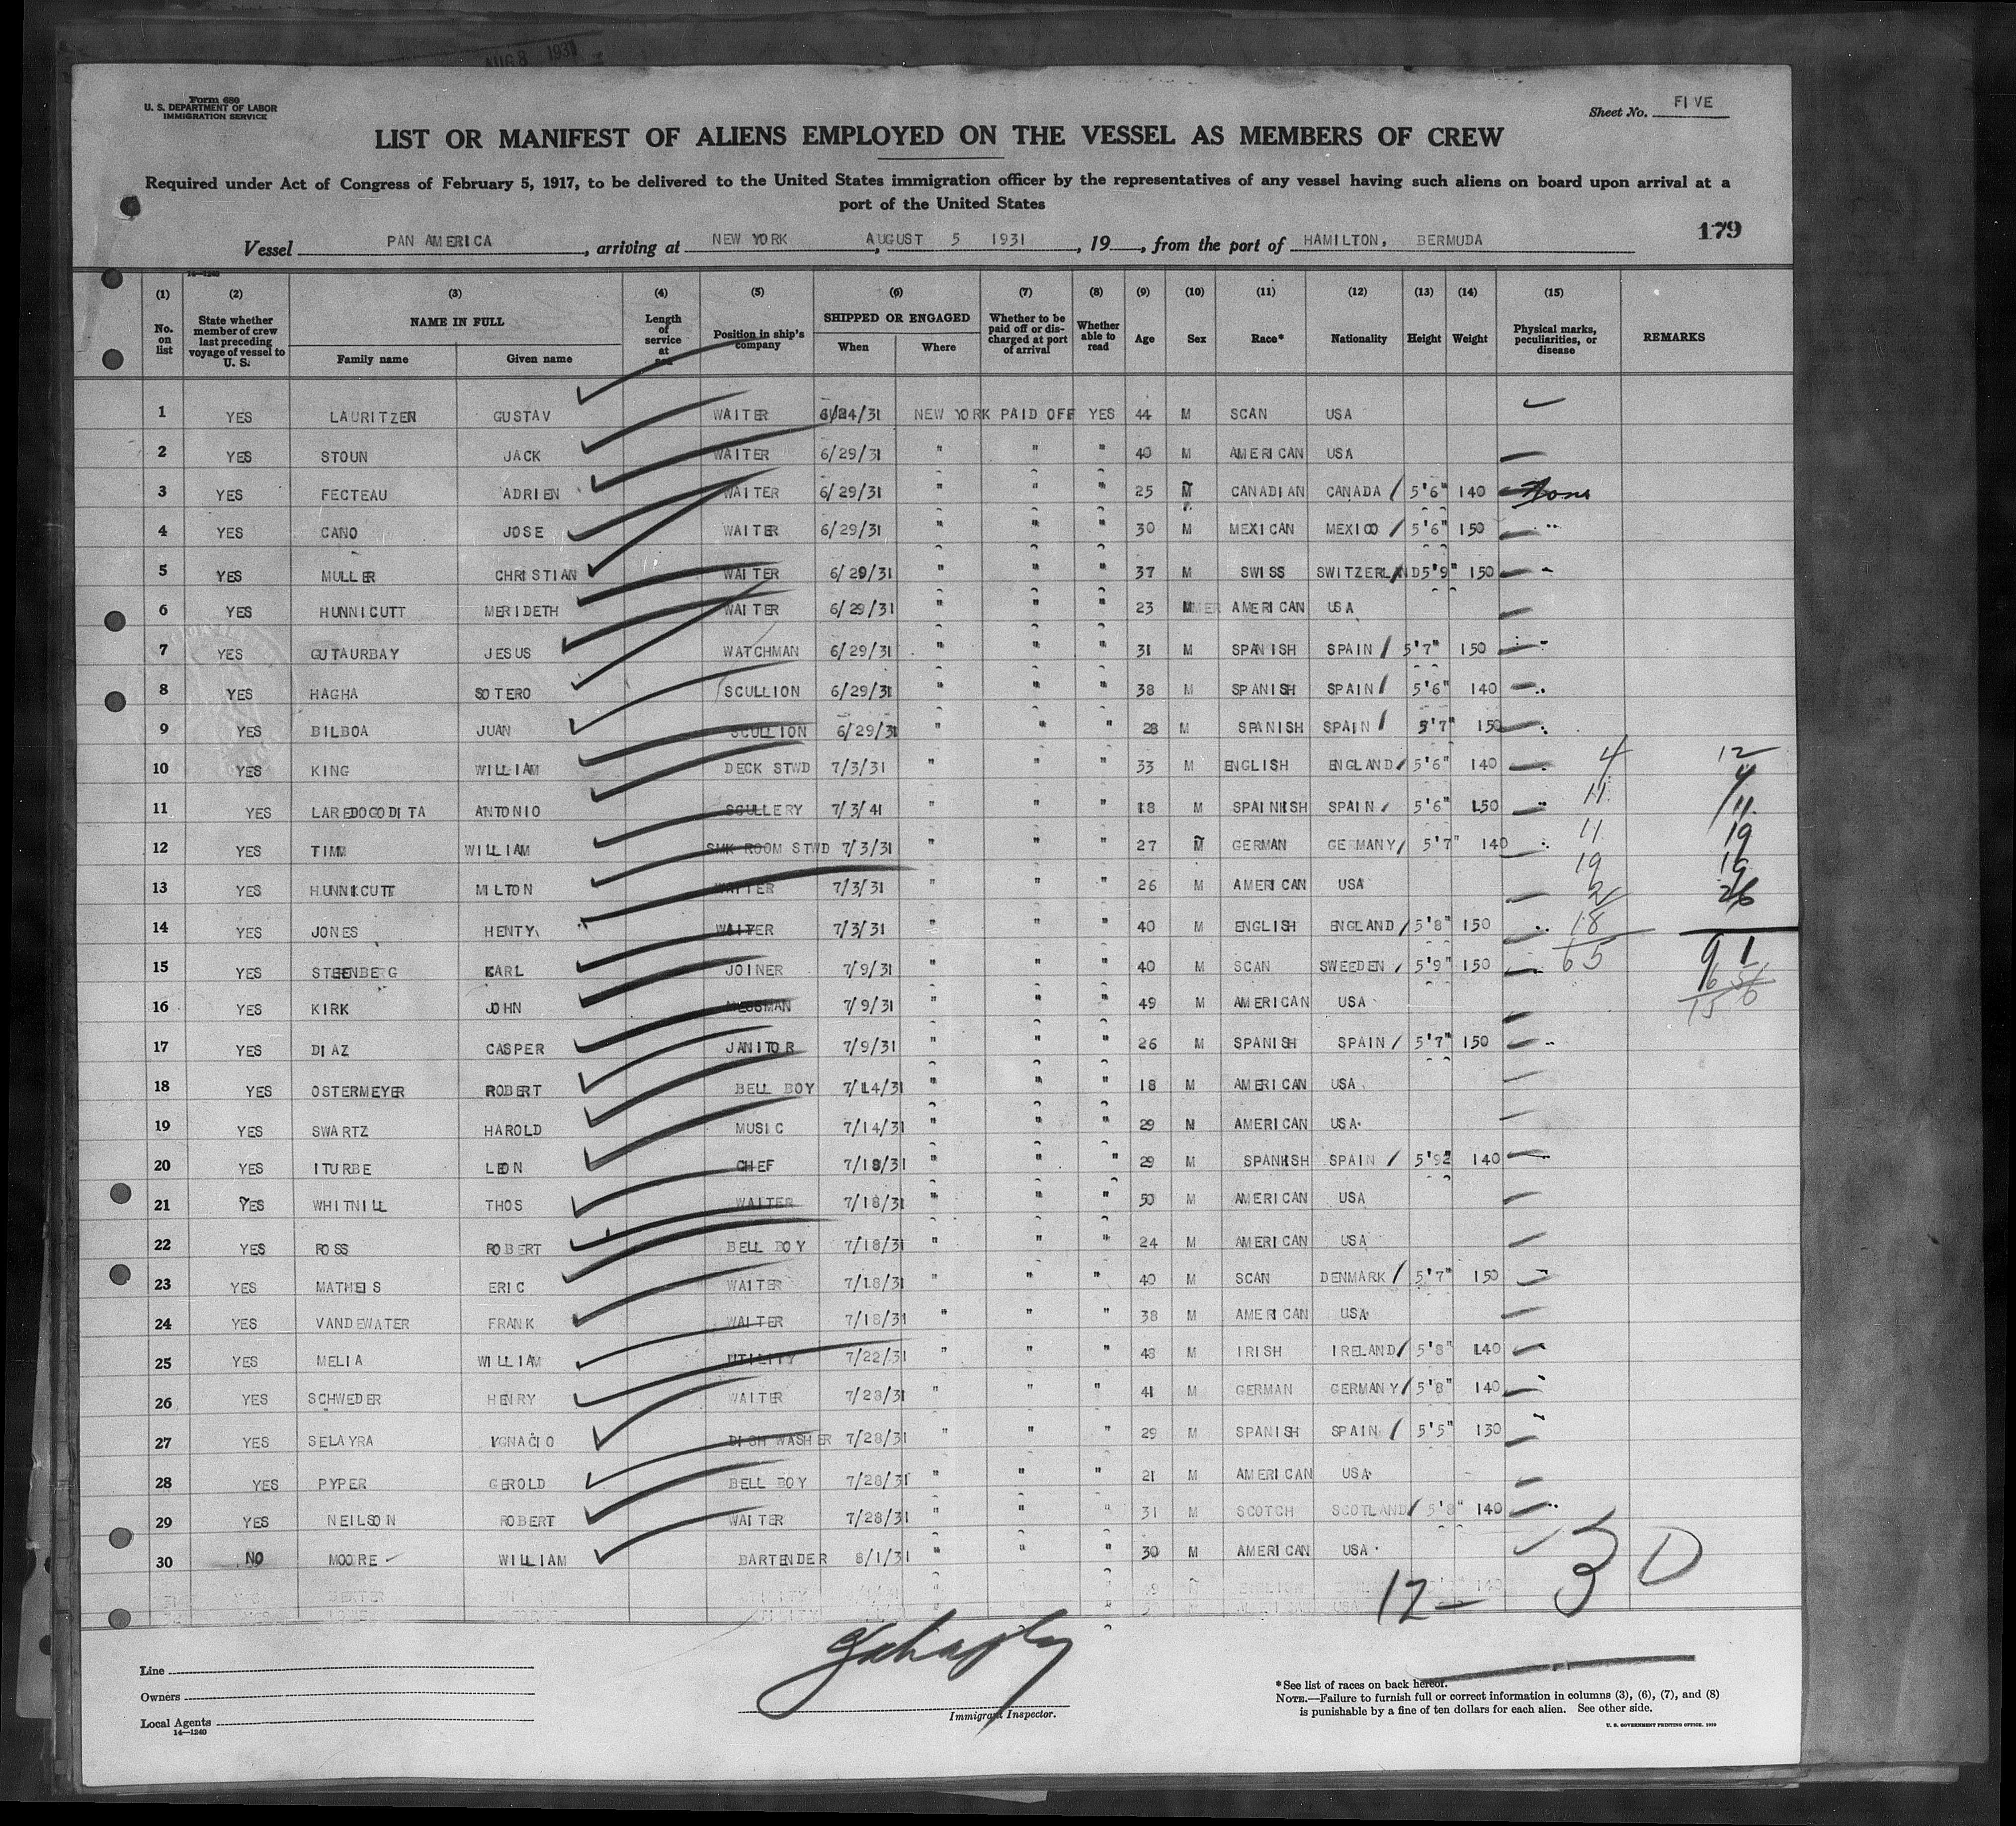 AUG 8 1931
Form 680
U. S. DEPARTMENT OF LABOR
IMMIGRATION SERVICE
Sheet No. FIVE
LIST OR MANIFEST OF ALIENS EMPLOYED ON THE VESSEL AS MEMBERS OF CREW
Required under Act of Congress of February 5, 1917, to be delivered to the United States immigration officer by the representatives of any vessel having such aliens on board upon arrival at a
port of the United States
179
Vessel PAN AMERICA, arriving at NEW YORK, AUGUST 5 1931, 19, from the port of HAMILTON, BERMUDA
14—1240
(1) (2) (3) (4) (5) (6) (7) (8) (9) (10) (11) (12) (13) (14) (15)
No. on list State whether member of crew last preceding voyage of vessel to U. S. NAME IN FULL Family name Given name Length of service at sea Position in ship's company SHIPPED OR ENGAGED When Where Whether to be paid off or discharged at port of arrival Whether able to read Age Sex Race* Nationality Height Weight Physical marks, peculiarities, or disease REMARKS
1 YES LAURITZEN GUSTAV WAITER 6/24/31 NEW YORK PAID OFF YES 44 M SCAN USA
2 YES STOUN JACK WAITER 6/29/31 " " " 40 M AMERICAN USA
3 YES FECTEAU ADRIEN WAITER 6/29/31 " " " 25 M CANADIAN CANADA / 5'6" 140 None
4 YES CANO JOSE WAITER 6/29/31 " " " 30 M MEXICAN MEXICO / 5'6" 150 "
5 YES MULLER CHRISTIAN WAITER 6/29/31 " " " 37 M SWISS SWITZERLAND 5'9" 150 "
6 YES HUNNICUTT MERIDETH WAITER 6/29/31 " " " 23 M AMERICAN USA
7 YES GUTAURBAY JESUS WATCHMAN 6/29/31 " " " 31 M SPANISH SPAIN / 5'7" 150 "
8 YES HAGHA SOTERO SCULLION 6/29/31 " " " 38 M SPANISH SPAIN / 5'6" 140 "
9 YES BILBOA JUAN SCULLION 6/29/31 " " " 28 M SPANISH SPAIN / 5'7" 150 "
10 YES KING WILLIAM DECK STWD 7/3/31 " " " 33 M ENGLISH ENGLAND / 5'6" 140 " 4 12
11 YES LAREDOGODITA ANTONIO SCULLERY 7/3/41 " " " 18 M SPAINISH SPAIN / 5'6" 150 " 11 4 11
12 YES TIMM WILLIAM SMK ROOM STWD 7/3/31 " " " 27 M GERMAN GERMANY / 5'7" 140 " 11 19
13 YES HUNNICUTT MILTON WAITER 7/3/31 " " " 26 M AMERICAN USA 19 2 19 26
14 YES JONES HENTY WAITER 7/3/31 " " " 40 M ENGLISH ENGLAND / 5'8" 150 " 18
15 YES STEENBERG KARL JOINER 7/9/31 " " " 40 M SCAN SWEEDEN / 5'9" 150 " 65 91
16 YES KIRK JOHN MESSMAN 7/9/31 " " " 49 M AMERICAN USA
17 YES DIAZ CASPER JANITOR 7/9/31 " " " 26 M SPANISH SPAIN / 5'7" 150 "
18 YES OSTERMEYER ROBERT BELL BOY 7/14/31 " " " 18 M AMERICAN USA
19 YES SWARTZ HAROLD MUSIC 7/14/31 " " " 29 M AMERICAN USA
20 YES ITURBE LEON CHEF 7/18/31 " " " 29 M SPANISH SPAIN / 5'92 140 "
21 YES WHITNILL THOS WAITER 7/18/31 " " " 50 M AMERICAN USA
22 YES ROSS ROBERT BELL BOY 7/18/31 " " " 24 M AMERICAN USA
23 YES MATHEIS ERIC WAITER 7/18/31 " " " 40 M SCAN DENMARK / 5'7" 150 "
24 YES VANDEWATER FRANK WAITER 7/18/31 " " " 38 M AMERICAN USA
25 YES MELIA WILLIAM UTILITY 7/22/31 " " " 48 M IRISH IRELAND / 5'8" 140 "
26 YES SCHWEDER HENRY WAITER 7/28/31 " " " 41 M GERMAN GERMANY / 5'8" 140 "
27 YES SELAYRA IGNACIO DISH WASHER 7/28/31 " " " 29 M SPANISH SPAIN / 5'5" 130 "
28 YES PYPER GEROLD BELL BOY 7/28/31 " " " 21 M AMERICAN USA
29 YES NEILSON ROBERT WAITER 7/28/31 " " " 31 M SCOTCH SCOTLAND / 5'8" 140 "
30 NO MOORE WILLIAM BARTENDER 8/1/31 " " " 30 M AMERICAN USA
12 — 3 D
Line
Owners
Local Agents
14—1240
Immigrant Inspector.
*See list of races on back hereof.
NOTE.—Failure to furnish full or correct information in columns (3), (6), (7), and (8)
is punishable by a fine of ten dollars for each alien. See other side.
U. S. GOVERNMENT PRINTING OFFICE. 1929